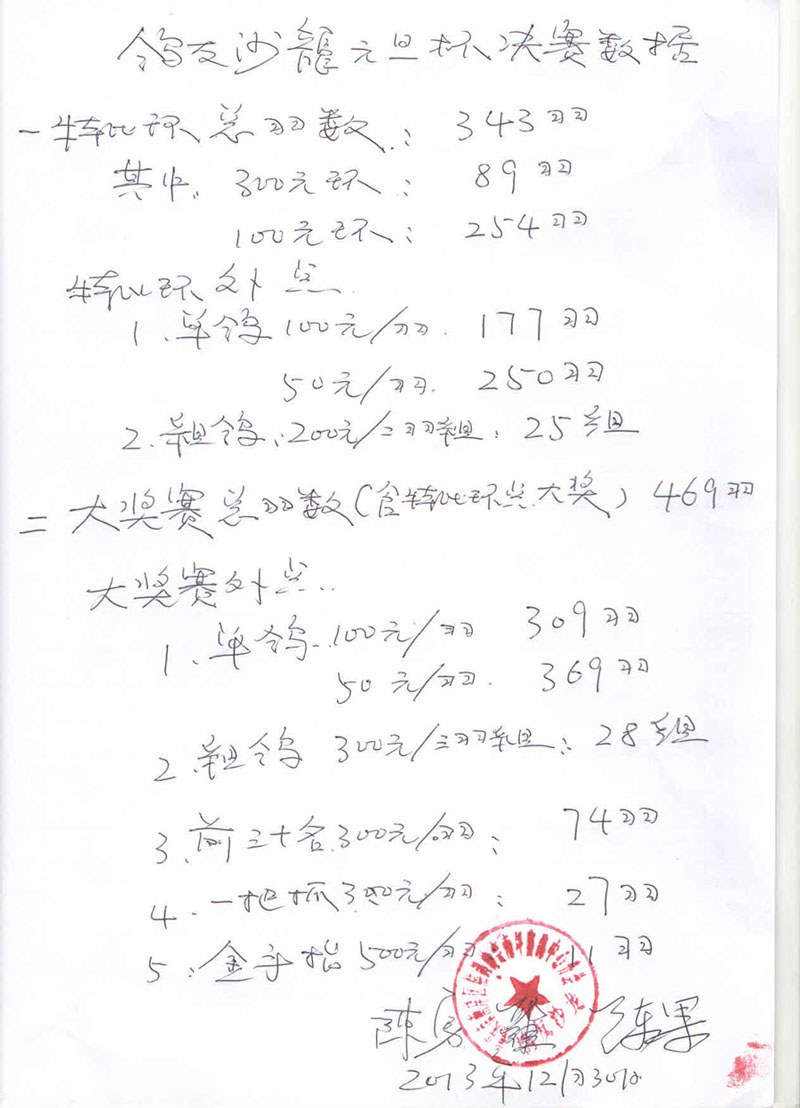 鸽友沙龍元旦杯决赛数据
一 特比环总羽数: 343羽
其中. 300元环: 89羽
100元环: 254羽
特比环外点
1. 单鸽 100元/羽. 177羽
50元/羽. 250羽
2. 组鸽. 200元/二羽组: 25组
二 大奖赛总羽数(含特比环点大奖) 469羽
大奖赛外点.
1. 单鸽. 100元/羽 309羽
50元/羽. 369羽
2. 组鸽 300元/三羽组: 28组
3. 前三十名 300元/羽: 74羽
4. 一把抓 300元/羽: 27羽
5. 金手指 500元/羽 11羽
陈勇 陈果
2013年12月30日